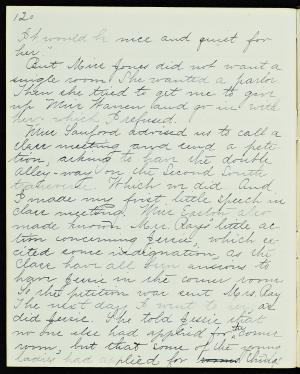 120
It would be nice and quiet for
her."
But Miss Jones did not want a
single room. She wanted a parlor.
Then she tried to get me to give
up Miss Warren and go in with
her, which I refused.
Miss Sanford advised us to call a
class meeting and send a peti-
tion, asking to have the double
alley-way on the second South
Which we did. And
I made my first little speech in
class meeting. Miss also
made known Mrs. Ray's little ac-
tion concerning Jessie, which ex-
cited some indignation, as the
class have all been anxious to
have Jessie in the corner room.
So the petition was sent Mrs. Ray
The next day I went to her, as
did Jessie. She told Jessie that
no one else had applied for the corner
room, but that some of the young
ladies had applied for